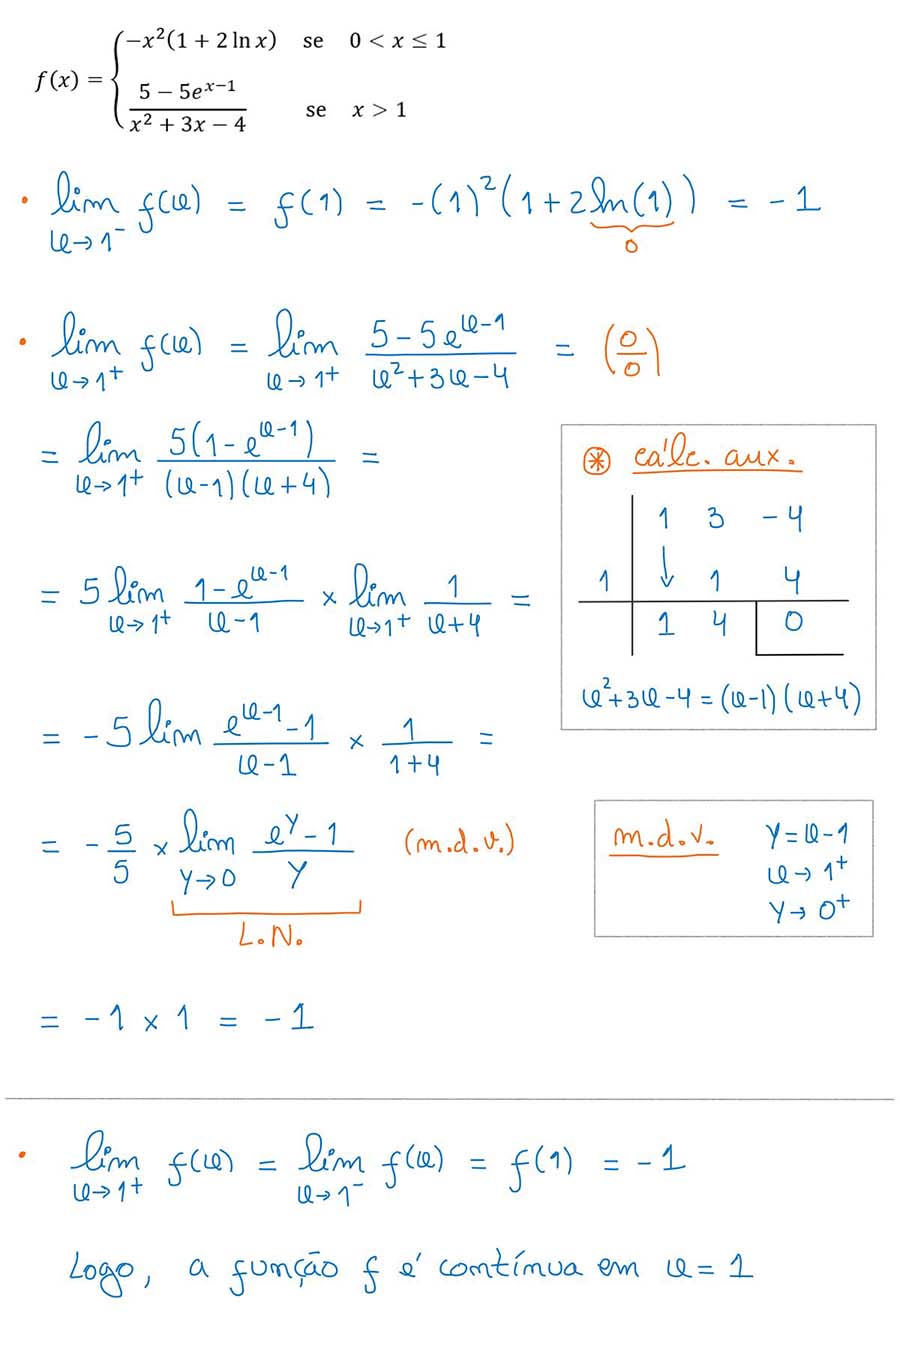 f(x) = { −x²(1 + 2 ln x) se 0 < x ≤ 1
(5 − 5eˣ⁻¹)/(x² + 3x − 4) se x > 1
• lim x→1⁻ f(x) = f(1) = -(1)²(1+2ln(1)) = -1
0
• lim x→1⁺ f(x) = lim x→1⁺ (5-5eˣ⁻¹)/(x²+3x-4) = (0/0)
= lim x→1⁺ 5(1-eˣ⁻¹)/((x-1)(x+4)) =
= 5 lim x→1⁺ (1-eˣ⁻¹)/(x-1) × lim x→1⁺ 1/(x+4) =
= -5 lim (eˣ⁻¹-1)/(x-1) × 1/(1+4) =
= -5/5 × lim y→0 (eʸ-1)/y (m.d.v.)
L.N.
= -1 × 1 = -1
⊛ cálc. aux.
1 3 -4
1 ↓ 1 4
1 4 0
x²+3x-4 = (x-1)(x+4)
m.d.v. y = x-1
x→1⁺
y→0⁺
• lim x→1⁺ f(x) = lim x→1⁻ f(x) = f(1) = -1
Logo, a função f é contínua em x = 1